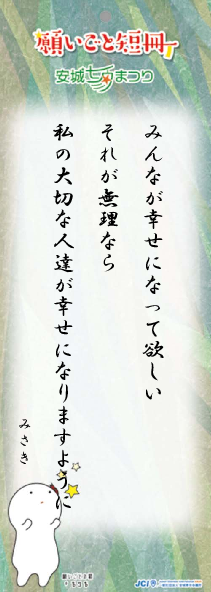 願いごと短冊
安城七夕まつり
みんなが幸せになって欲しい
それが無理なら
私の大切な人達が幸せになりますように
みさき
JCI